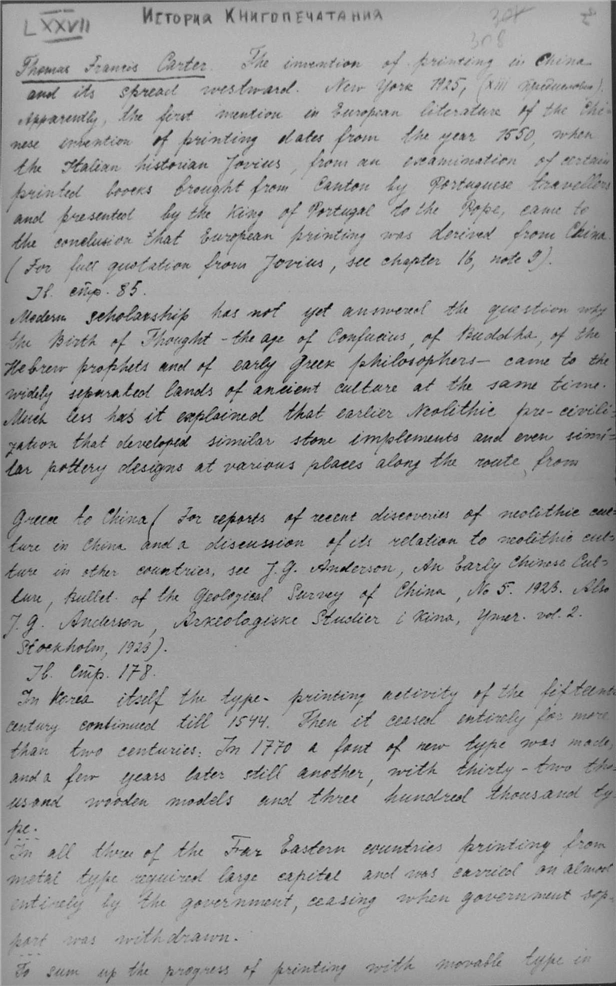 LXXVII
История Книгопечатания
308
Thomas Francis Carter. The invention of printing in China
and its spread westward. New York 1925, (XIII предисловие).
Apparently, the first mention in European literature of the Chi-
nese invention of printing dates from the year 1550, when
the Italian historian Jovius, from an examination of certain
printed boocks brought from Canton by Portuguese travellers
and presented by the King of Portugal to the Pope, came to
the conclusion that European printing was derived from China.
(For full quotation from Jovius, see chapter 16, note 9).
Ib. стр. 85.
Modern scholarship has not yet answered the question why
the Birth of Thought - the age of Confucius, of Buddha, of the
Hebrew prophets and of early Greek philosophers - came to the
widely separated lands of ancient culture at the same time.
Much less has it explained that earlier Neolithic pre-civili-
zation that developed similar stone implements and even simi-
lar pottery designs at various places along the route from
Greece to China (For reports of recent discoveries of neolithic cul-
ture in China and a discussion of its relation to neolithic cul-
ture in other countries, see J.G. Anderson, An Early Chinese Cul-
ture, Bullet. of the Geological Survey of China, No 5. 1923. Also
J.G. Anderson, Arkeologiske Studier i Kina, Ymer. vol. 2.
Stockholm, 1923).
Ib. стр. 178.
In Korea itself the type-printing activity of the fifteenth
century continued till 1544. Then it ceased entirely for more
than two centuries: In 1770 a font of new type was made,
and a few years later still another, with thirty-two tho-
usand wooden models and three hundred thousand ty-
pe.
In all three of the Far Eastern countries printing from
metal type required large capital and was carried on almost
entirely by the government, ceasing when government sup-
port was withdrawn.
To sum up the progress of printing with movable type in